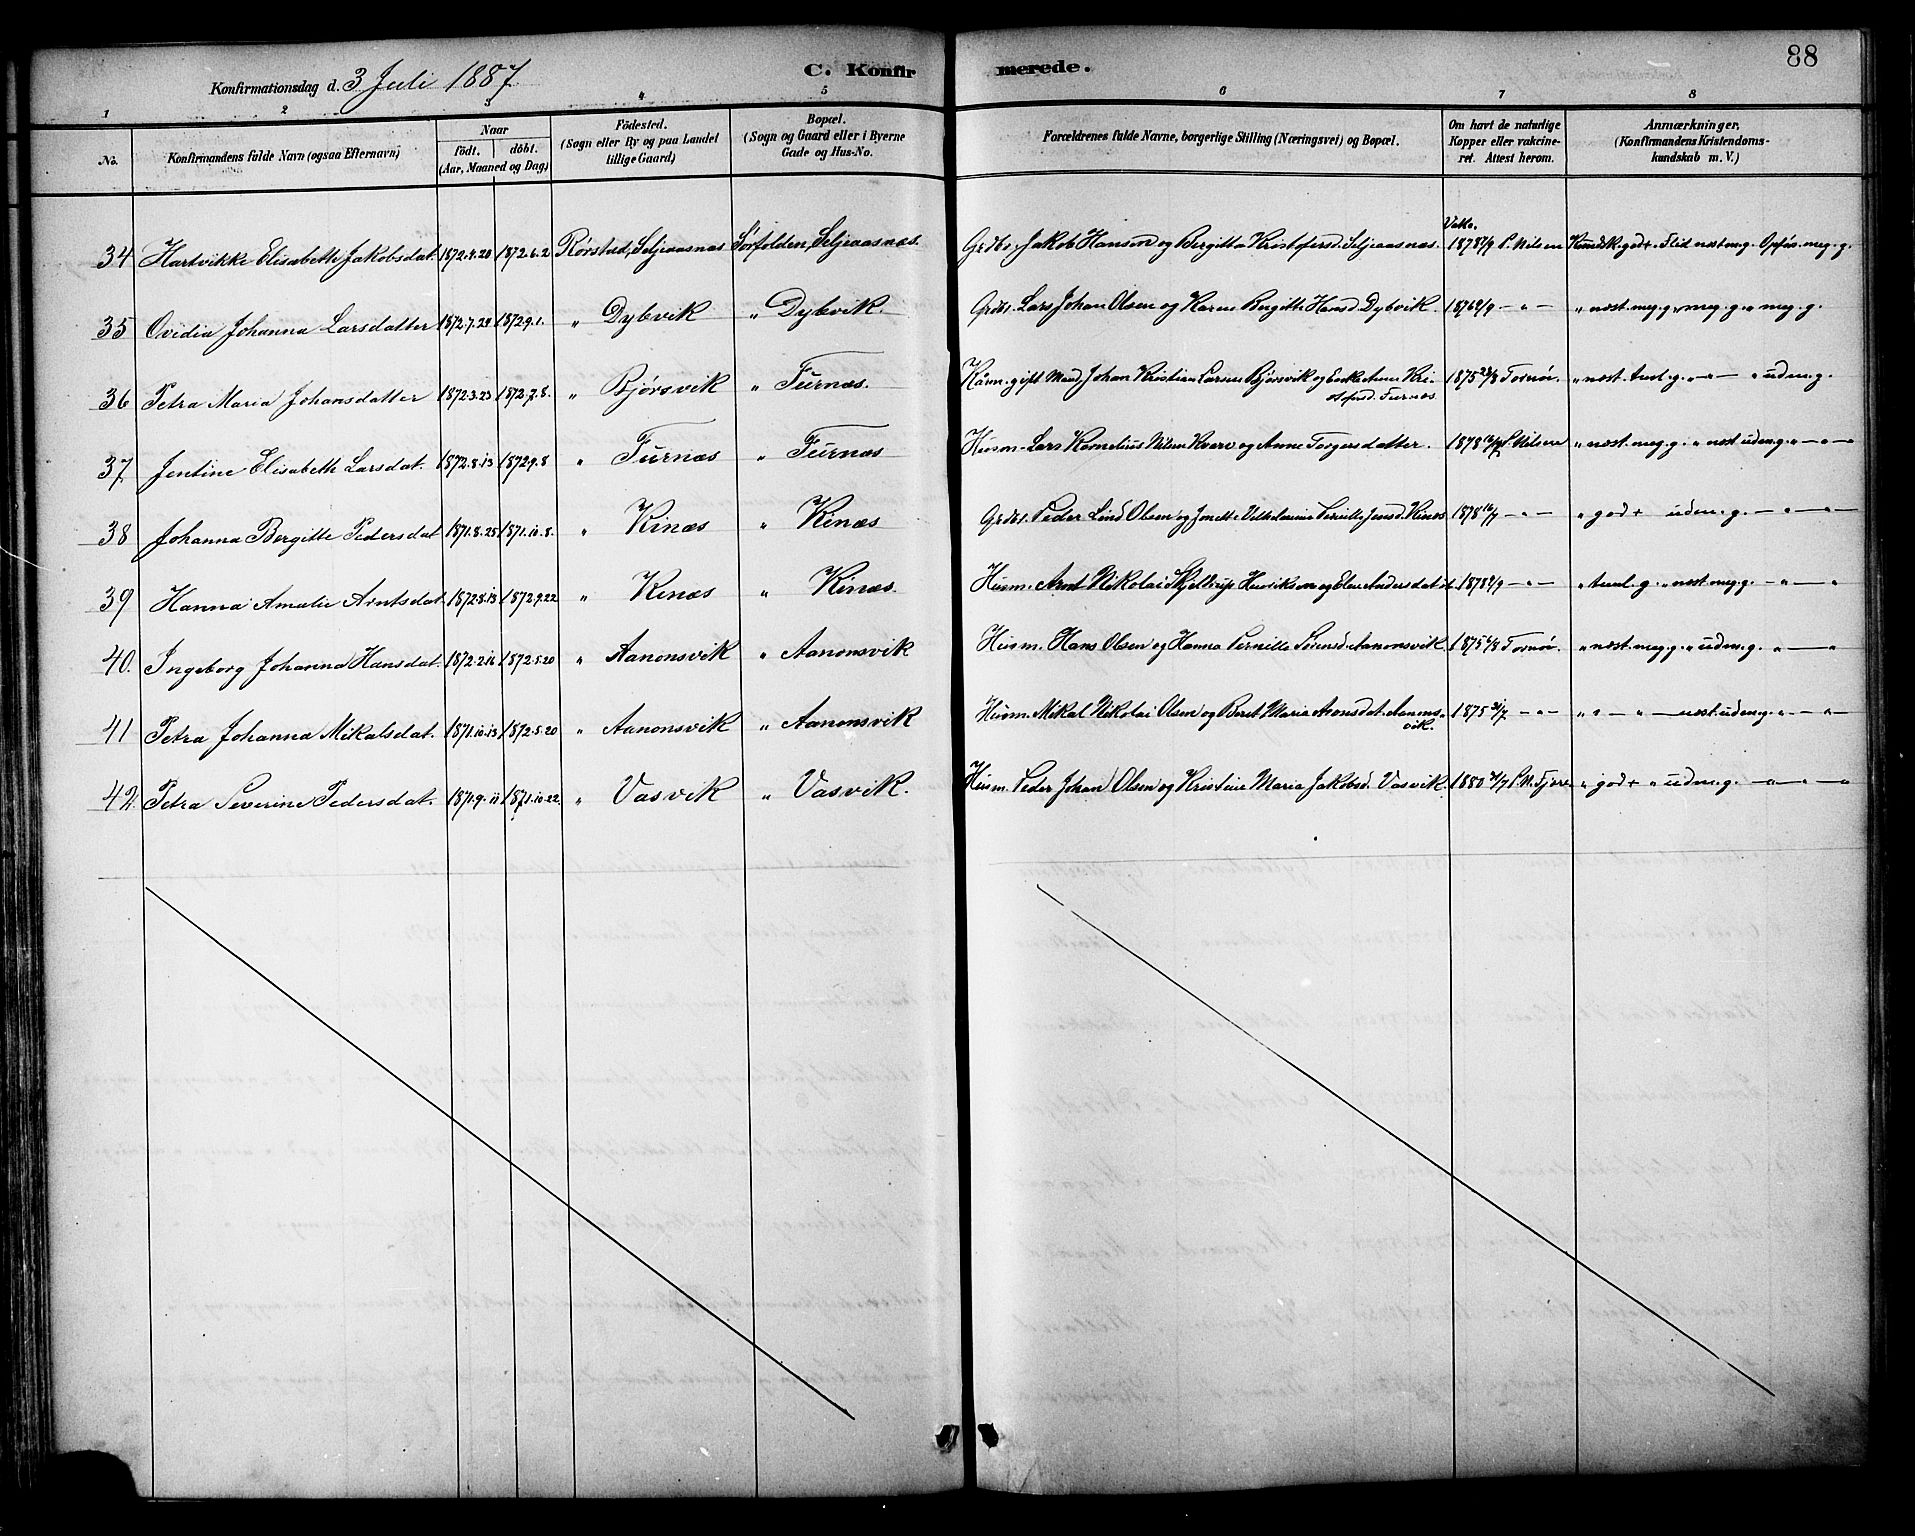 88
Konfirmationsdag d. 3 Juli 1887. C. Konfirmerede.
1 2 3 4 5 6 7 8
No. Konfirmandens fulde Navn (ogsaa Efternavn) Naar födt. döbt. (Aar, Maaned og Dag) Födested. (Sogn eller By og paa Landet tillige Gaard) Bopæl. (Sogn og Gaard eller i Byerne Gade og Hus-No. Forældrenes fulde Navne, borgerlige Stilling (Næringsvei) og Bopæl. Om havt de naturlige Kopper eller vakcineret. Attest herom. Anmærkninger. (Konfirmandens Kristendomskundskab m. V.)
34 Hartvikke Elisabeth Jakobsdat. 1872.4.20 1872.6.2 Rørstad, Seljeaasnæs Sørfolden, Seljeaasnæs. Grdbr. Jakob Hansen og Bergitta Kristofersd. Seljeaasnæs. Vakc. 1878 7/9 P. Nilsen Kundsk. god+. Flid næst m.g. Opfør. meg. g.
35 Ovidia Johanna Larsdatter 1872.7.29 1872.9.1. " Dybvik " Dybvik. Grdbr. Lars Johan Olsen og Karen Bergitte Hansd. Dybvik. 1876 2/9 — " — " næst. meg. g. " meg. g. " meg. g.
36 Petra Maria Johansdatter 1872.3.23 1872.7.8. " Bjørsvik " Furnæs. gift Mand Johan Kristian Larsen Bjørsvik og Enke Anne Kristofersd. Furnæs. 1875 23/8 Tornør. " næst. tml. g. " — " — " udm. g.
37 Jentine Elisabeth Larsdat. 1872.8.13 1872.9.8 " Furnæs " Furnæs Husm. Lars Kornelius Nilsen Kvarv og Anne Torgersdatter. 1878 12/7 P. Nilsen " næst. meg. g. " næst udm. g. " — " — "
38 Johanna Bergitte Pedersdat 1871.8.25 1871.10.8. " Kinæs " Kinæs Grdbr. Peder Lind Olsen og Jonette Vilhelmine Pernille Jensd. Kinæs 1878 12/7 — " — " god + udm. g. — " — " —
39 Hanna Amalie Arntsdat. 1872.8.13 1872.9.22 " Kinæs " Kinæs. Husm. Arnt Nikolai Skjeldrup Henriksen og Else Andersdat. 1878 2/9 — " — " tml. g. " næst. meg. g. — " — "
40. Ingeborg Johanna Hansdat. 1872.2.16 1872.5.20 " Aanonsvik " Aanonsvik Husm. Hans Olsen og Hanna Pernille Sørensd. Aanonsvik. 1875 6/8 Tornør. " næst. meg. g. " udm. g. " — "
41 Petra Johanna Mikalsdat. 1871.10.13 1872.5.20 " Aanonsvik " Aanonsvik Husm. Mikal Nikolai Olsen og Beret Maria Aronsdat. Aanonsvik. 1875 31/7 — " — " " — " — næst. udm. g. " — " — "
42. Petra Severine Pedersdat. 1871.9.11 1871.10.22. " Vasvik " Vasvik. Husm. Peder Johan Olsen og Kristine Maria Jakobsd. Vasvik. 1880 31/7 P. M. Fjære " god + " udm. g. — " — " — "